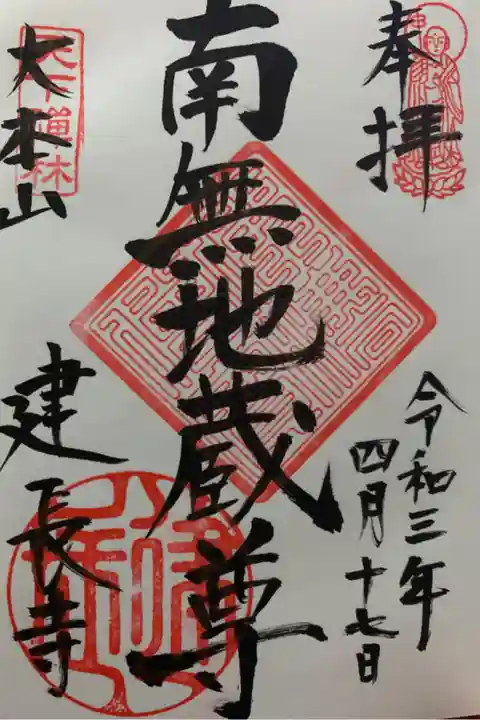 奉拝
令和三年
四月十七日
南無地蔵尊
大本山
建長寺
天下禅林